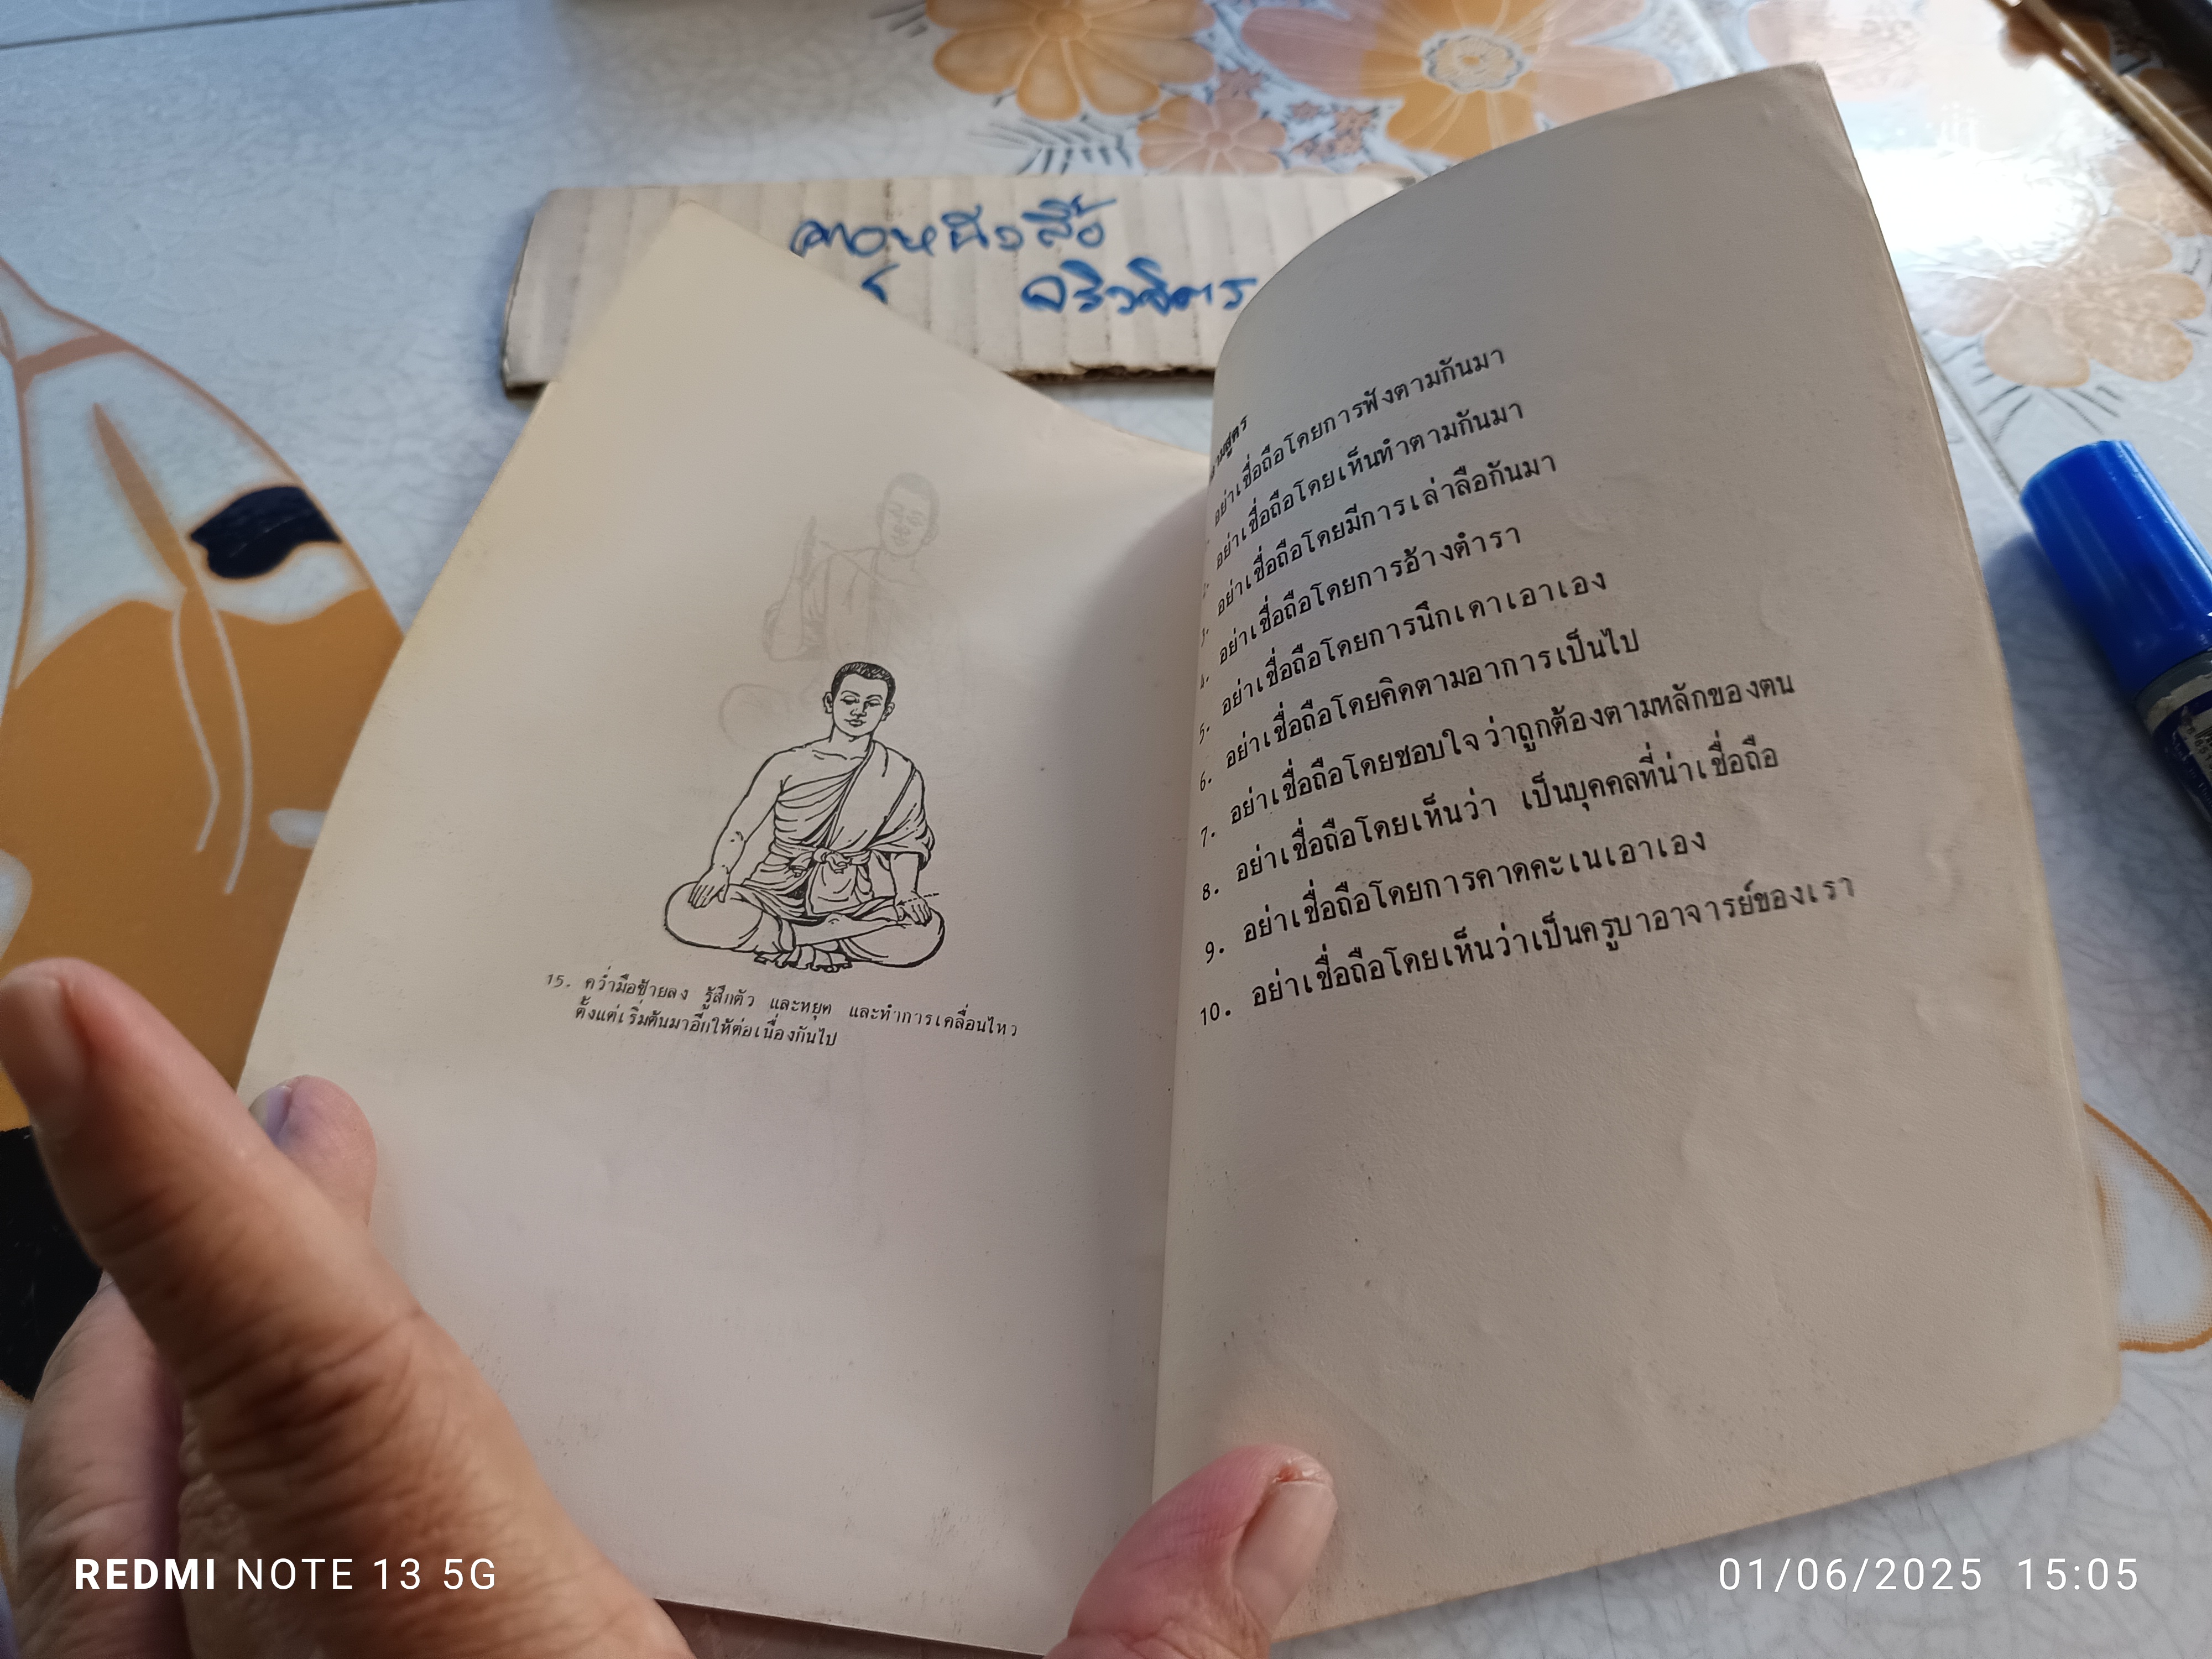 15. คว่ำมือซ้ายลง รู้สึกตัว และหยุด และทำการเคลื่อนไหว
ตั้งแต่เริ่มต้นมาอีกให้ต่อเนื่องกันไป
อย่าเชื่อถือโดยการฟังตามกันมา
2. อย่าเชื่อถือโดยเห็นทำตามกันมา
3. อย่าเชื่อถือโดยมีการเล่าลือกันมา
4. อย่าเชื่อถือโดยการอ้างตำรา
5. อย่าเชื่อถือโดยการนึกเดาเอาเอง
6. อย่าเชื่อถือโดยคิดตามอาการเป็นไป
7. อย่าเชื่อถือโดยชอบใจว่าถูกต้องตามหลักของตน
8. อย่าเชื่อถือโดยเห็นว่า เป็นบุคคลที่น่าเชื่อถือ
9. อย่าเชื่อถือโดยการคาดคะเนเอาเอง
10. อย่าเชื่อถือโดยเห็นว่าเป็นครูบาอาจารย์ของเรา
REDMI NOTE 13 5G
01/06/2025 15:05